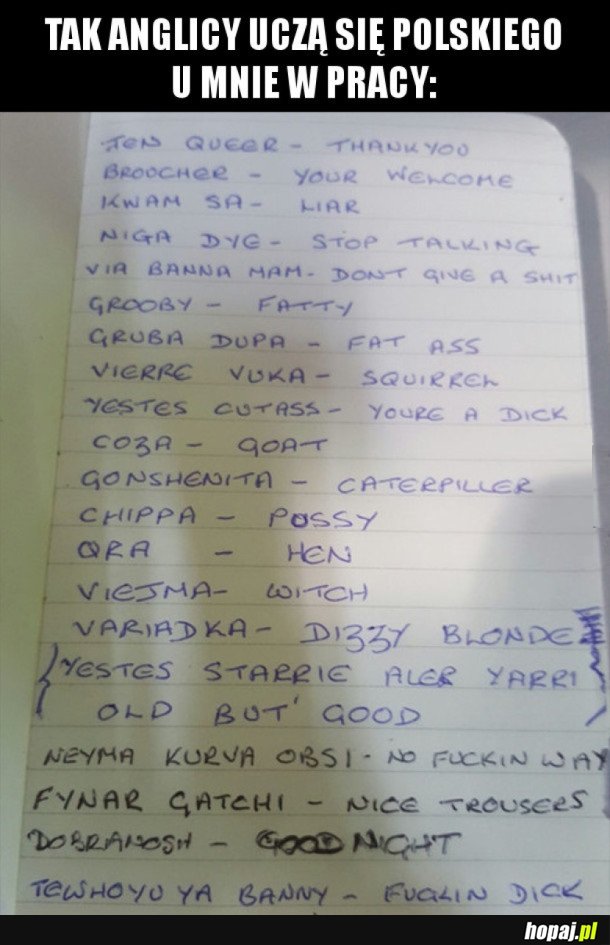 TAK ANGLICY UCZĄ SIĘ POLSKIEGO
U MNIE W PRACY:
JEN QUEER - THANKYOU
BROOCHER - YOUR WELCOME
KWAM SA - LIAR
NIGA DYE - STOP TALKING
VIA BANNA MAM - DONT GIVE A SHIT
GROOBY - FATTY
GRUBA DUPA - FAT ASS
VIERRE VUKA - SQUIRREL
YESTES CUTASS - YOURE A DICK
COZA - GOAT
GONSHENITA - CATERPILLER
CHIPPA - PUSSY
QRA - HEN
VIEJMA - WITCH
VARIADKA - DIZZY BLONDE
YESTES STARRIE ALER YARRI
OLD BUT GOOD
NEYMA KURVA OBSI - NO FUCKIN WAY
FYNAR GATCHI - NICE TROUSERS
DOBRANOSH - GOOD NIGHT
TEWHOYU YA BANNY - FUCKIN DICK
hopaj.pl